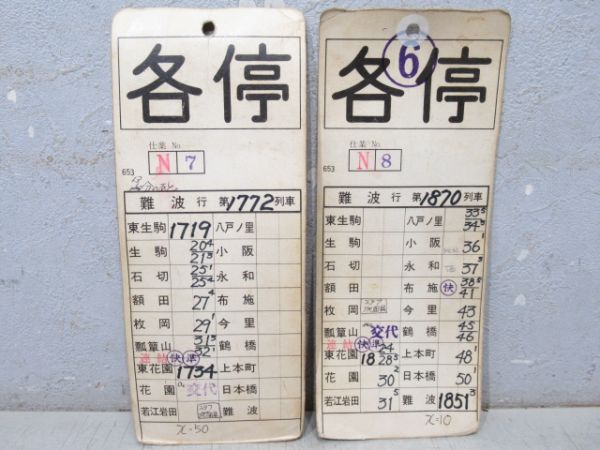 各停
仕業 No.
653
N 7
難波 行 第1772列車
東生駒 1719 八戸ノ里
生駒 20⁴ 21³ 小阪
石切 25¹ 25⁴ 永和
額田 27⁴ 布施
枚岡 29¹ 今里
瓢簞山 31³ 32¹ 鶴橋
連結 快 準
東花園 1734 上本町
花園 交代 日本橋
若江岩田 難波
x-50
6
各停
仕業 No.
653
N 8
難波 行 第1870列車
東生駒 八戸ノ里 33⁵ 34⁵
生駒 小阪 36¹
石切 永和 37³
額田 布施 快 38⁵ 41
枚岡 今里 43
瓢簞山 交代 鶴橋 45 46
連結 快 準
東花園 18 24 28⁵ 上本町 48¹
花園 30² 日本橋 50¹
若江岩田 31⁵ 難波 1851³
x=10